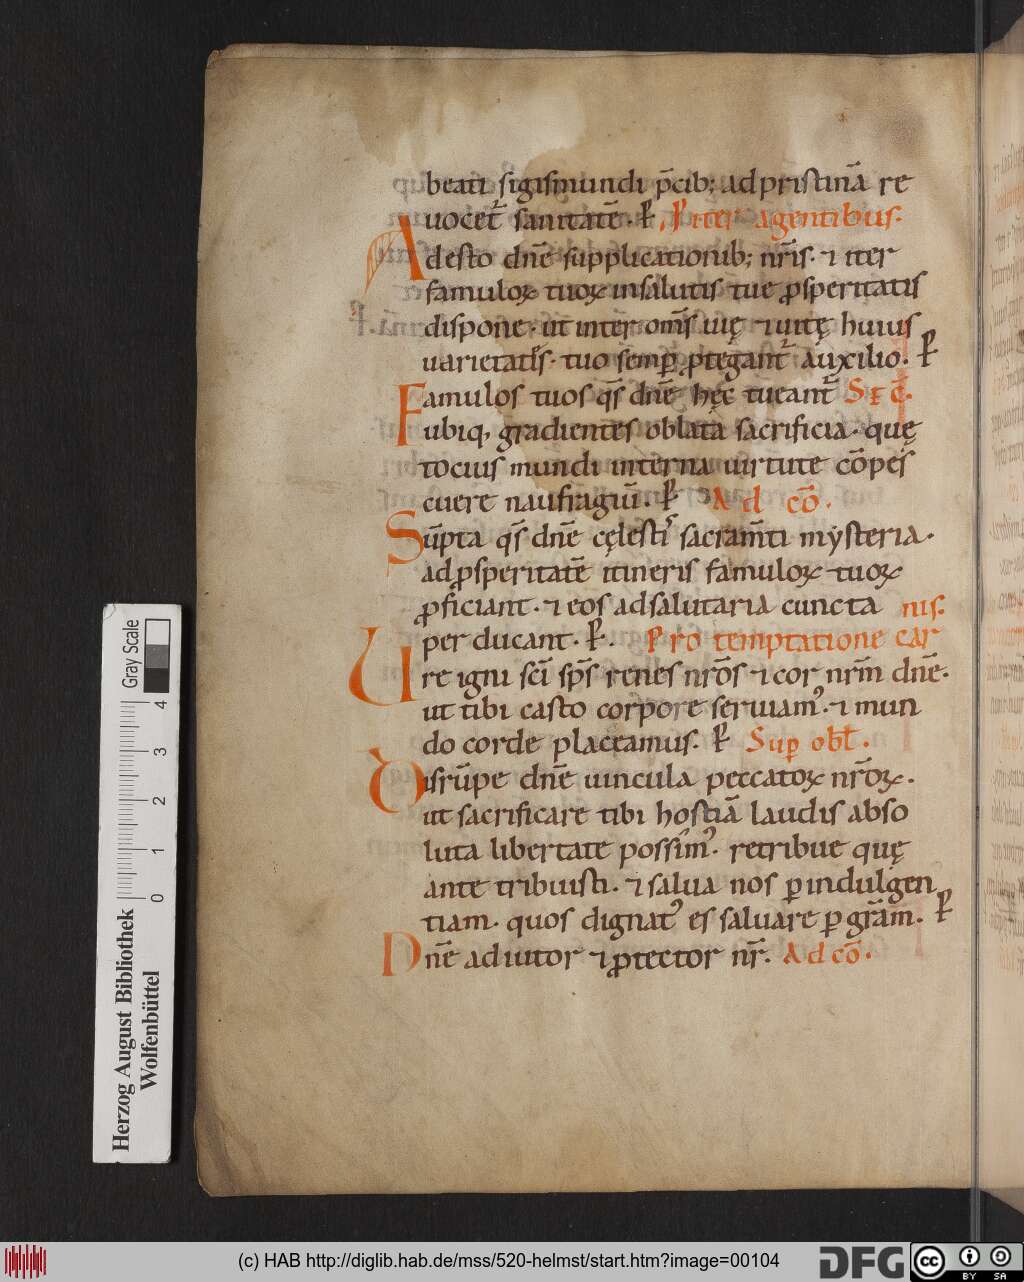 beati sigismundi p̄cib; ad pristinā re
uocet᷑ sanitatē. ꝑ P̱ iter agentibus.
Adesto dn̄e supplicationib; nr̄is. ⁊ iter
famuloꝝ tuoꝝ in salutis tue ꝓsperitatis
dispone. ut inter om̄s uię ⁊ uitę huius
uarietates. tuo semꝑ ꝓtegant᷑ auxilio. ꝑ
Famulos tuos qs̄ dn̄e hęc tueant᷑ S E C̄.
ubiq, gradientes oblata sacrificia. quę
tocius mundi interna uirtute cōpes
cuere naufragiū. ꝑ Ad cō.
Sūpta qs̄ dn̄e cęlestis sacram̄ti mẏsteria.
ad ꝓsperitatē itineris famuloꝝ tuoꝝ
ꝓficiant. ⁊ eos ad salutaria cuncta nis.
per ducant. ꝑ. Pro temptatione car
Ure igni sc̄i sp̄s renes nr̄os ⁊ cor nrm̄ dn̄e.
ut tibi casto corpore seruiamꝰ. ⁊ mun
do corde placeamus. ꝑ Suꝑ obl̄.
Disrūpe dn̄e uincula peccatoꝝ nr̄oꝝ.
ut sacrificare tibi hostiā laudis abso
luta libertate possimꝰ. retribue quę
ante tribuisti. ⁊ salua nos ꝑ indulgen
tiam. quos dignatꝰ es saluare ꝑ gr̄am. ꝑ
Dn̄e adiutor ⁊ ꝓtector nr̄. Ad cō.
Gray Scale
0 1 2 3 4
Herzog August Bibliothek
Wolfenbüttel
(c) HAB http://diglib.hab.de/mss/520-helmst/start.htm?image=00104
DFG
cc BY SA